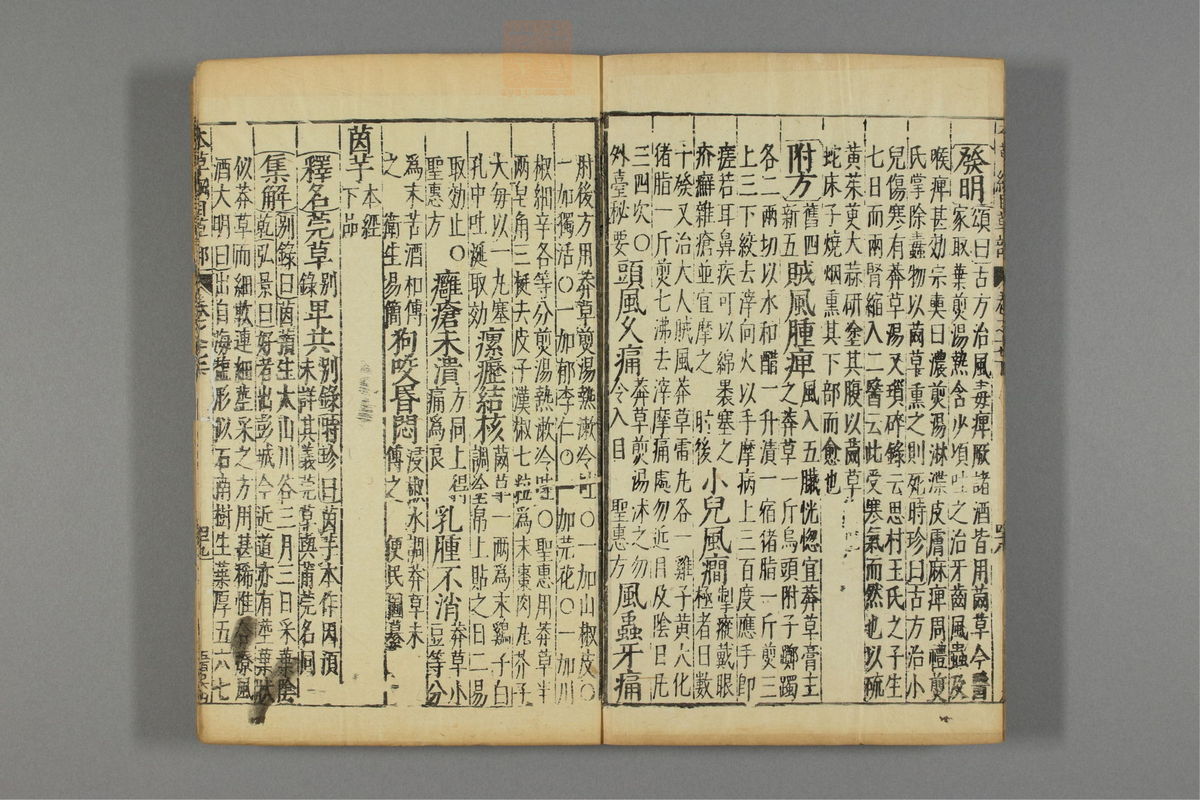 發明頌曰古方治風毒痺厥諸酒皆用䒽草今醫
家取葉煎湯熱含少頃吐之治牙齒風蟲及
喉痺甚効宗奭曰濃煎湯淋渫皮膚麻痺周禮翦
氏掌除蠹物以䒽草熏之則死時珍曰古方治小
兒傷寒有莽草湯又瑣碎錄云思村王氏之子生
七日而兩腎縮入二醫云此受寒氣而然也以硫
黃茱萸大蒜研塗其腹以䒽草
蛇床子燒烟熏其下部而愈也
附方舊四新五賊風腫痺風入五臟恍惚宜莽草膏主
之莽草一斤烏頭附子躑躅
各二兩切以水和醋一升漬一宿猪脂一斤煎三
上三下絞去滓向火以手摩病上三百度應手即
瘥若耳鼻疾可以綿裹塞之
疥癬雜瘡並宜摩之 肘後小兒風癎掣瘲戴眼
極者日數
十發又治大人賊風莽草雷丸各一雞子黃大化
猪脂一斤煎七沸去滓摩痛處勿近目及陰日凡
三四次〇
外臺秘要頭風久痛莽草煎湯沐之勿
令入目 聖惠方風蟲牙痛
肘後方用莽草煎湯熱漱冷吐〇一加山椒皮〇
一加獨活〇一加郁李仁〇一加芫花〇一加川
椒細辛各等分煎湯熱漱冷吐〇聖惠用莽草半
兩皂角三梃去皮子漢椒七粒爲末棗肉丸芥子
大每以一丸塞
孔中吐涎取効瘰癧結核䒽草一兩爲末鷄子白
調塗帛上貼之日二易
取効止〇
聖惠方癰瘡未潰方同上得
痛爲良乳腫不消莽草小
豆等分
爲末苦酒和傅
之 衛生易簡狗咬昏悶浸椒水調莽草末
傅之 便民圖纂
茵芋本經
下品
釋名莞草別錄卑共別錄時珍曰茵芋本作因預
未詳其義莞草與蒲莞名同
集解別錄曰茵芋生太山川谷三月三日采葉陰
乾弘景曰好者出彭城今近道亦有莖葉狀
似莽草而細軟連細莖采之方用甚稀惟
酒大明曰出自海鹽形似石南樹生葉厚五六七